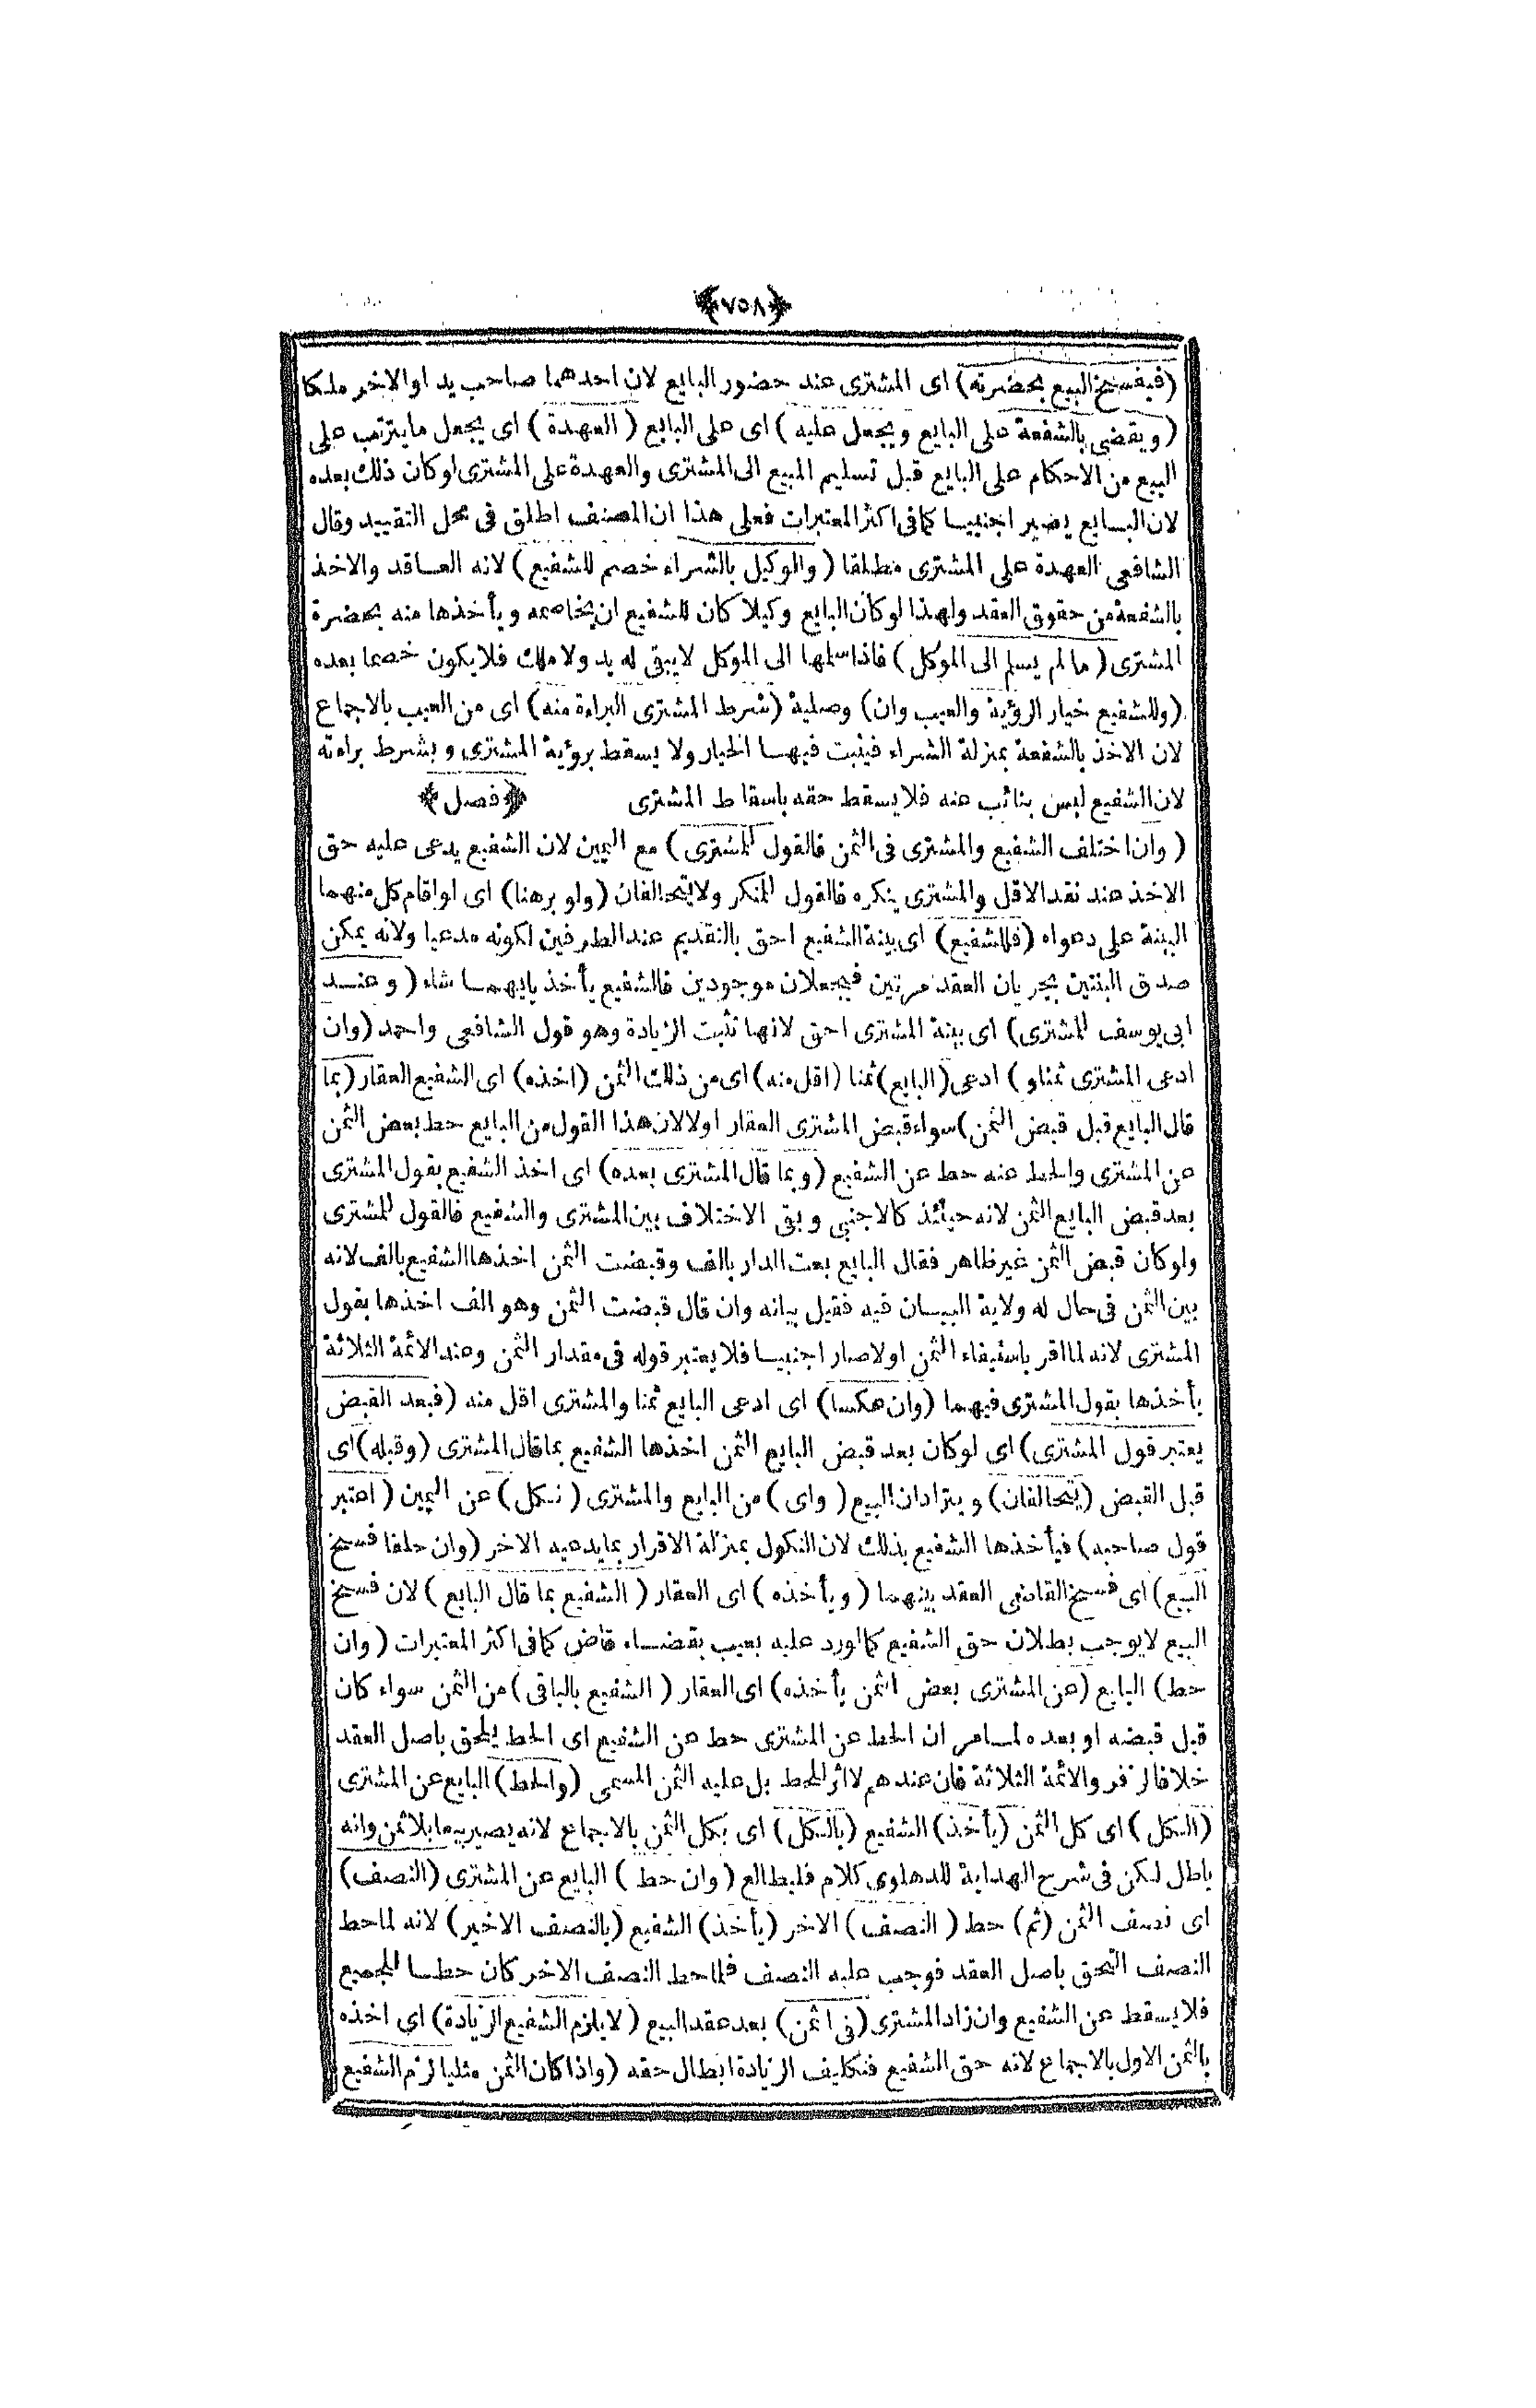 ﴿٧٥٨﴾
(فيفسخ البيع بحضرته) اى المشترى عند حضور البايع لان احدهما صاحب يد او الاخر ملكا
(ويقضى بالشفعة على البايع ويجعل عليه) اى على البايع (العهدة) اى يجعل ما يترتب على
البيع من الاحكام على البايع قبل تسليم المبيع الى المشترى والعهدة على المشترى لو كان ذلك بعده
لان البايع يصير اجنبيا كما فى اكثر المعتبرات فعلى هذا ان المصنف اطلق فى محل التقييد وقال
الشافعى العهدة على المشترى مطلقا (والوكيل بالشراء خصم للشفيع) لانه العاقد والاخذ
بالشفعة من حقوق العقد ولهذا لو كان البايع وكيلا كان للشفيع ان يخاصمه ويأخذها منه بحضرة
المشترى (ما لم يسلم الى الموكل) فاذا سلمها الى الموكل لا يبقى له يد ولا ملك فلا يكون خصما بعده
(وللشفيع خيار الرؤية والعيب وان) وصلية (شرط المشترى البراءة منه) اى من العيب بالاجماع
لان الاخذ بالشفعة بمنزلة الشراء فيثبت فيها الخيار ولا يسقط برؤية المشترى وبشرط براءته
لان الشفيع ليس بنائب عنه فلا يسقط حقه باسقاط المشترى ﴿فصل﴾
(وان اختلف الشفيع والمشترى فى الثمن فالقول للمشترى) مع اليمين لان الشفيع يدعى عليه حق
الاخذ عند نقد الاقل والمشترى ينكره فالقول للمنكر ولا يتحالفان (ولو برهنا) اى لو اقام كل منهما
البينة على دعواه (فللشفيع) اى بينة الشفيع احق بالتقديم عند الطرفين لكونه مدعيا ولانه يمكن
صدق البينتين بجريان العقد مرتين فيجعلان موجودين فالشفيع يأخذ بايهما شاء (وعند
ابى يوسف للمشترى) اى بينة المشترى احق لانها تثبت الزيادة وهو قول الشافعى واحمد (وان
ادعى المشترى ثمنا و) ادعى (البايع) ثمنا (اقل منه) اى من ذلك الثمن (اخذه) اى الشفيع العقار (بما
قال البايع قبل قبض الثمن) سواء قبض المشترى العقار اولا لان هذا القول من البايع حط بعض الثمن
عن المشترى والحط عنه حط عن الشفيع (وبما قال المشترى بعده) اى اخذ الشفيع بقول المشترى
بعد قبض البايع الثمن لانه حينئذ كالاجنبى وبقى الاختلاف بين المشترى والشفيع فالقول للمشترى
ولو كان قبض الثمن غير ظاهر فقال البايع بعت الدار بالف وقبضت الثمن اخذها الشفيع بالف لانه
بين الثمن فى حال له ولاية البيان فيه فقيل بيانه وان قال قبضت الثمن وهو الف اخذها بقول
المشترى لانه لما اقر باستيفاء الثمن اولا صار اجنبيا فلا يعتبر قوله فى مقدار الثمن وعند الائمة الثلاثة
يأخذها بقول المشترى فيهما (وان عكسا) اى ادعى البايع ثمنا والمشترى اقل منه (فبعد القبض
يعتبر قول المشترى) اى لو كان بعد قبض البايع الثمن اخذها الشفيع بما قال المشترى (وقبله) اى
قبل القبض (يتحالفان) ويترادان البيع (واى) من البايع والمشترى (نكل) عن اليمين (اعتبر
قول صاحبه) فيأخذها الشفيع بذلك لان النكول بمنزلة الاقرار بما يدعيه الاخر (وان حلفا فسخ
البيع) اى فسخ القاضى العقد بينهما (ويأخذه) اى العقار (الشفيع بما قال البايع) لان فسخ
البيع لا يوجب بطلان حق الشفيع كما لو رد عليه بعيب بقضاء قاض كما فى اكثر المعتبرات (وان
حط) البايع (عن المشترى بعض الثمن يأخذه) اى العقار (الشفيع بالباقى) من الثمن سواء كان
قبل قبضه او بعده لما مر ان الحط عن المشترى حط عن الشفيع اى الحط يلحق باصل العقد
خلافا لزفر والائمة الثلاثة فان عندهم لا اثر للحط بل عليه الثمن المسمى (والحط) البايع عن المشترى
(الكل) اى كل الثمن (يأخذ) الشفيع (بالكل) اى بكل الثمن بالاجماع لانه يصير بيعا بلا ثمن وانه
باطل لكن فى شرح الهداية للدهلوى كلام فليطالع (وان حط) البايع عن المشترى (النصف)
اى نصف الثمن (ثم) حط (النصف) الاخر (يأخذ) الشفيع (بالنصف الاخير) لانه لما حط
النصف التحق باصل العقد فوجب عليه النصف فلما حط النصف الاخر كان حطا للجميع
فلا يسقط عن الشفيع وان زاد المشترى (فى الثمن) بعد عقد البيع (لا يلزم الشفيع الزيادة) اى اخذه
بالثمن الاول بالاجماع لانه حق الشفيع فتكليف الزيادة ابطال حقه (واذا كان الثمن مثليا لزم الشفيع